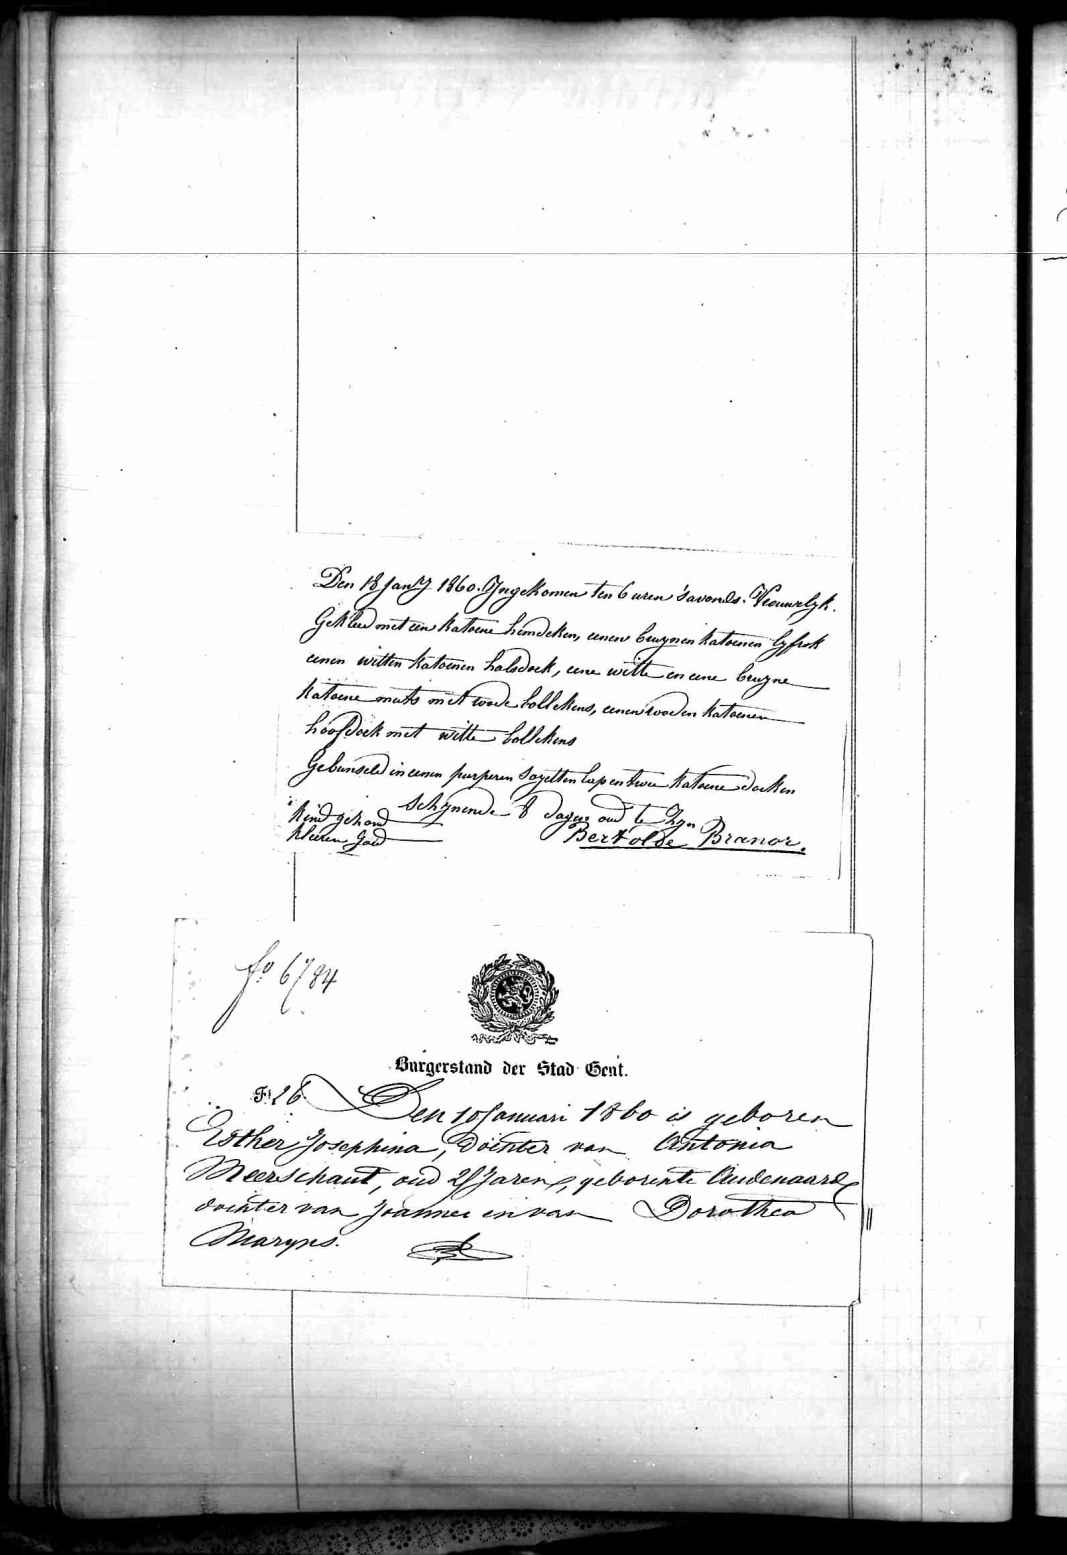 Den 18 Jany 1860. Yngekomen ten 6 uren 'savonds. Vrouwelyk.
Gekleed met een katoene hemdeken, eenen bruynen katoenen lyfrok
eenen witten katoenen halsdoek, eene witte en eene bruyne
katoene muts met roode bollekens, eenen rooden katoenen
hoofdoek met witte bollekens
Gebunseld in eenen purperen sayetten lap en twee katoene doeken
schynende 8 dagen oud te zyn
kind gezond
kleeren goed
Bertolde Branor.
fo 6784
Burgerstand der Stad Gent.
F. 26 Den 10 Januari 1860 is geboren
Esther Josephina, dochter van Antonia
Meerschaut, oud Jaren, geboren te Audenaarde
dochter van Joannes en van Dorothea
Maryns.